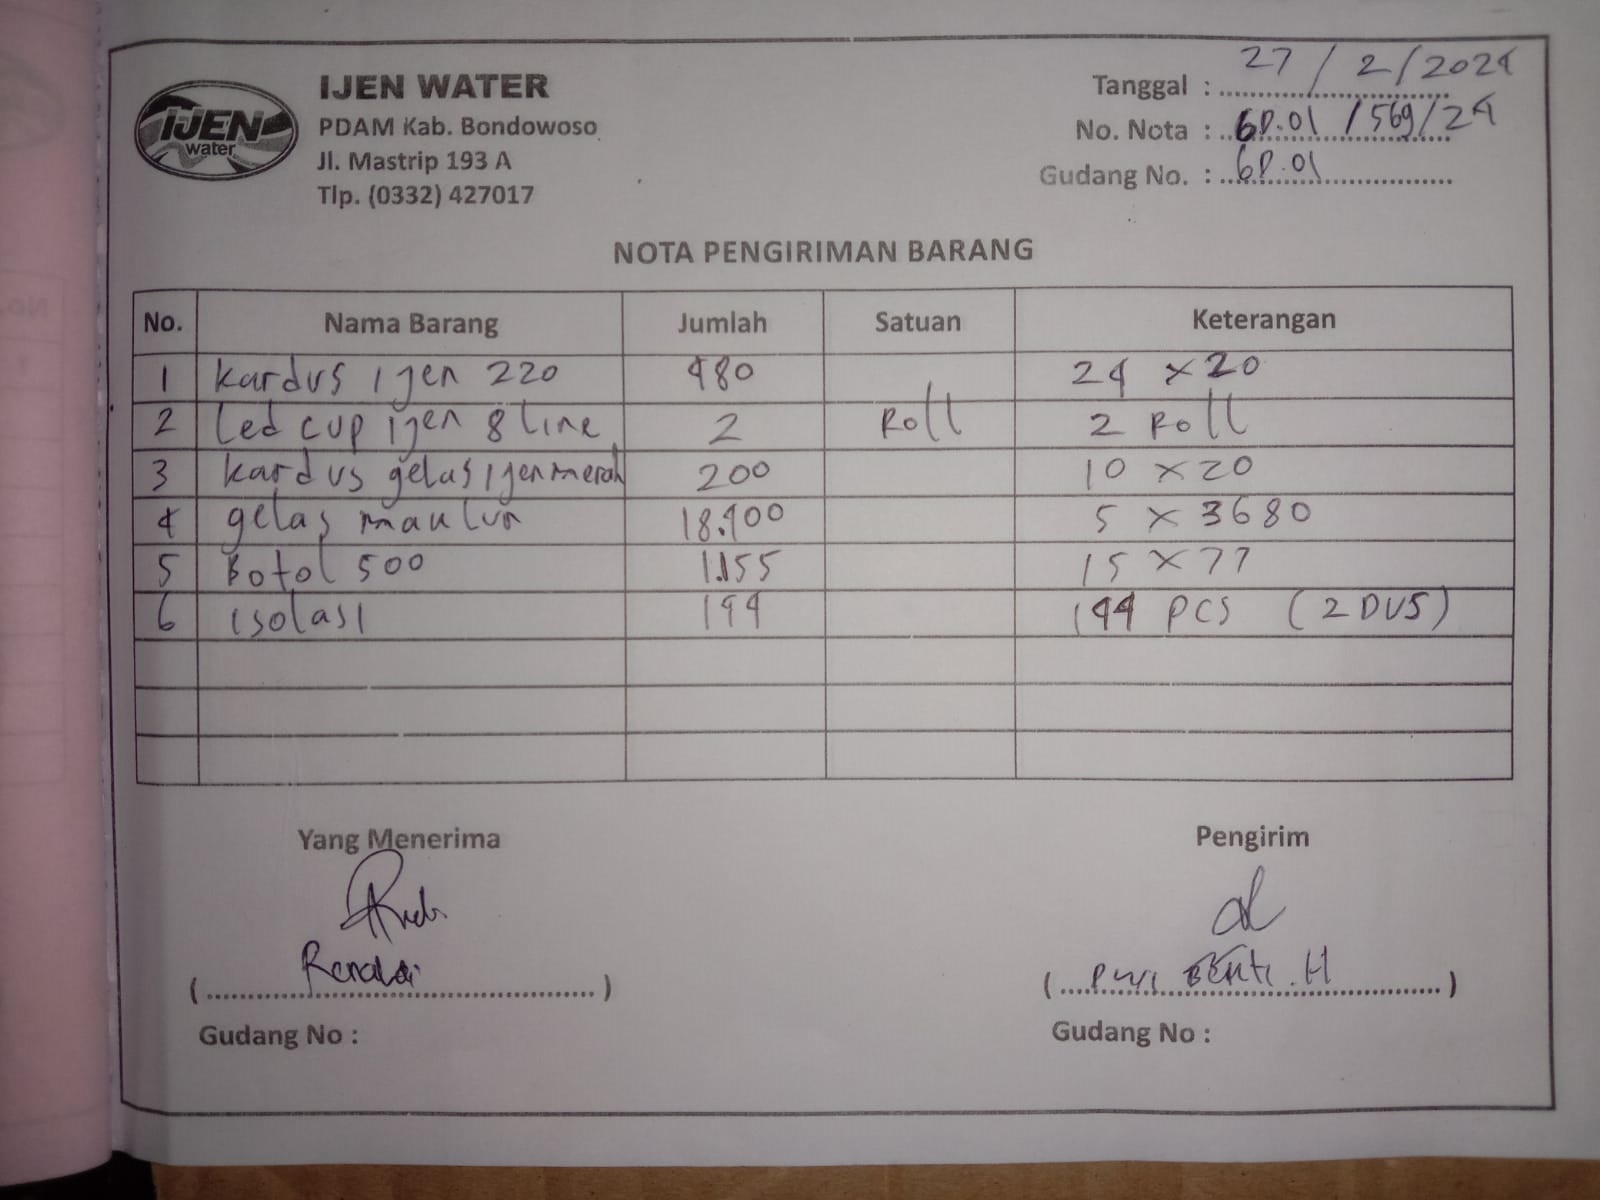 IJEN WATER
PDAM Kab. Bondowoso
Jl. Mastrip 193 A
Tlp. (0332) 427017
IJEN
water
Tanggal : 27 / 2 / 2024
No. Nota : GD.01 / 569 / 24
Gudang No. : GD.01
NOTA PENGIRIMAN BARANG
No. Nama Barang Jumlah Satuan Keterangan
1 kardus ijen 220 480 24 x 20
2 Led cup ijen 8 line 2 Roll 2 Roll
3 kardus gelas ijen merah 200 10 x 20
4 gelas 18.400 5 x 3680
5 Botol 500 1.155 15 x 77
6 isolasi 144 144 PCS (2 DUS)
Yang Menerima
Pengirim
( Renaldi )
( H )
Gudang No :
Gudang No :